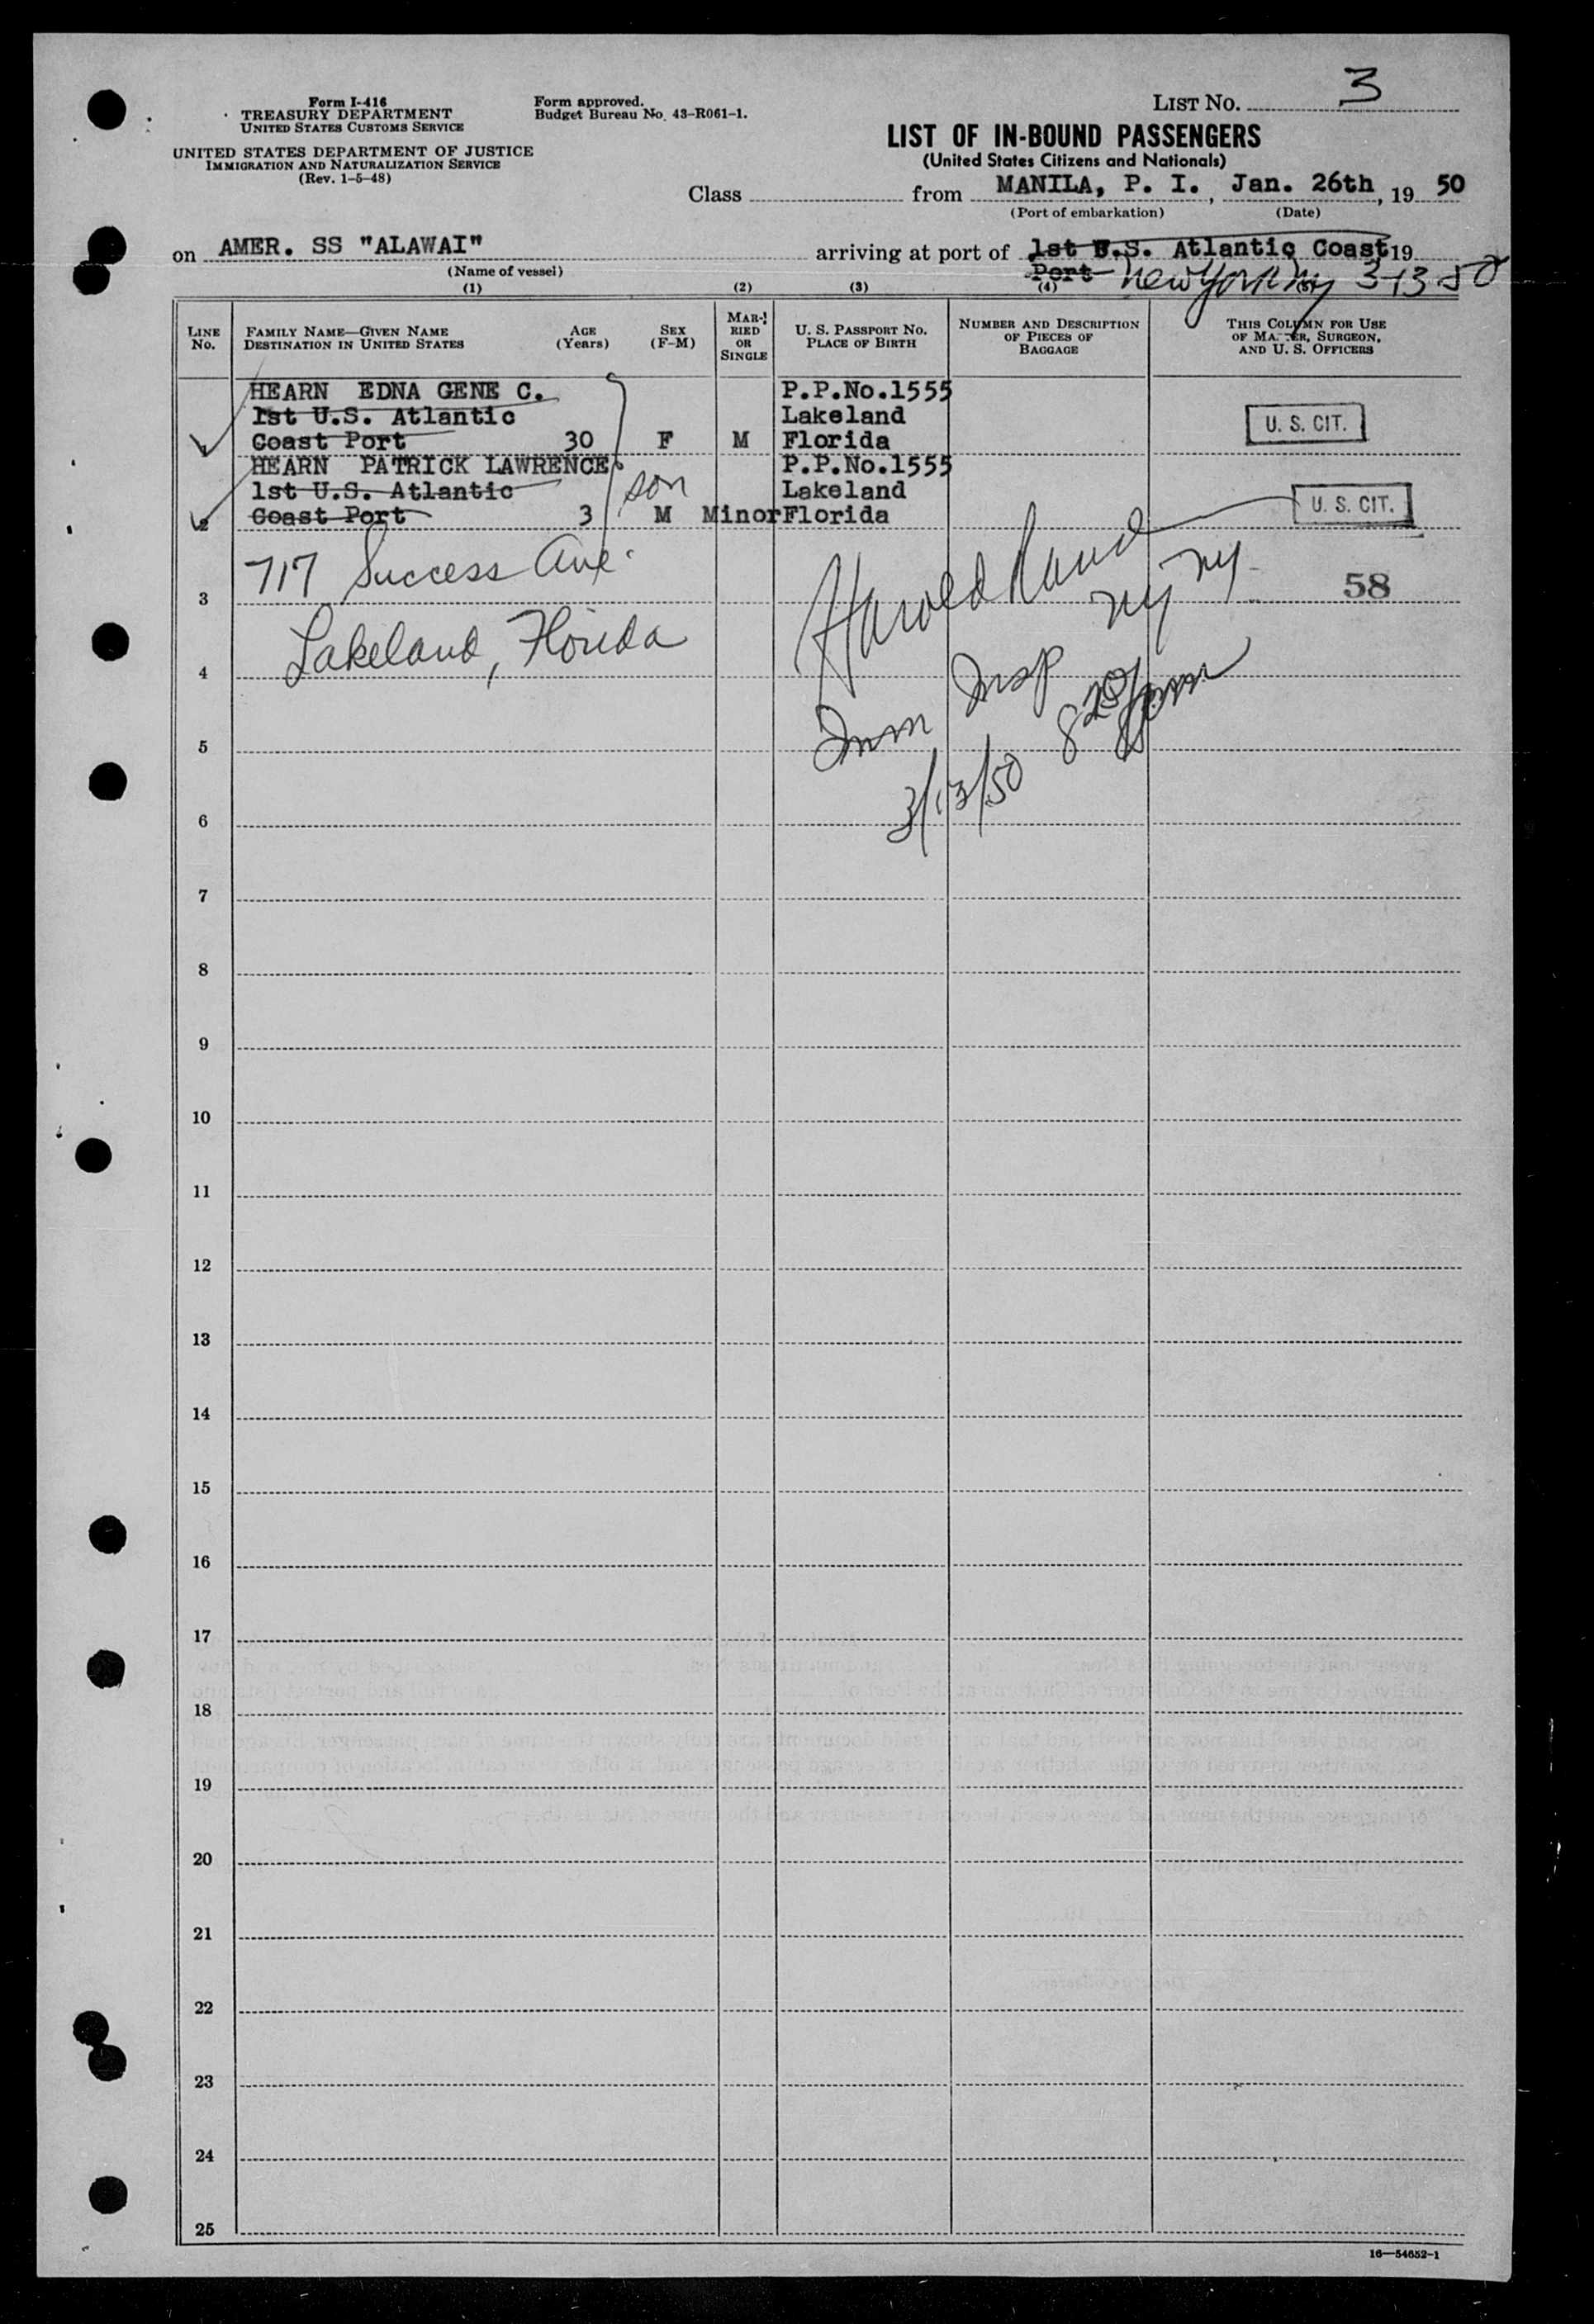 LIST No. 3
Form I-416
TREASURY DEPARTMENT
UNITED STATES CUSTOMS SERVICE
UNITED STATES DEPARTMENT OF JUSTICE
IMMIGRATION AND NATURALIZATION SERVICE
(Rev. 1-5-48)
Form approved.
Budget Bureau No. 43-R061-1.
LIST OF IN-BOUND PASSENGERS
(United States Citizens and Nationals)
Class from MANILA, P. I., Jan. 26th, 19 50
(Port of embarkation) (Date)
on AMER. SS "ALAWAI" arriving at port of 1st U.S. Atlantic Coast 19
(Name of vessel) Port New York NY 3-13-50
(1) (2) (3) (4)
LINE No. FAMILY NAME—GIVEN NAME DESTINATION IN UNITED STATES AGE (Years) SEX (F-M) MARRIED OR SINGLE U. S. PASSPORT NO. PLACE OF BIRTH NUMBER AND DESCRIPTION OF PIECES OF BAGGAGE THIS COLUMN FOR USE OF MASTER, SURGEON, AND U. S. OFFICERS
HEARN EDNA GENE C. P.P.No.1555
1st U.S. Atlantic Lakeland
Coast Port 30 F M Florida U. S. CIT.
HEARN PATRICK LAWRENCE P.P.No.1555
1st U.S. Atlantic son Lakeland
2 Coast Port 3 M Minor Florida U. S. CIT.
717 Success Ave.
3 Harold NY NY 58
4 Lakeland, Florida
Imm Insp
5
3/13/50
6
7
8
9
10
11
12
13
14
15
16
17
18
19
20
21
22
23
24
25
16—54652-1